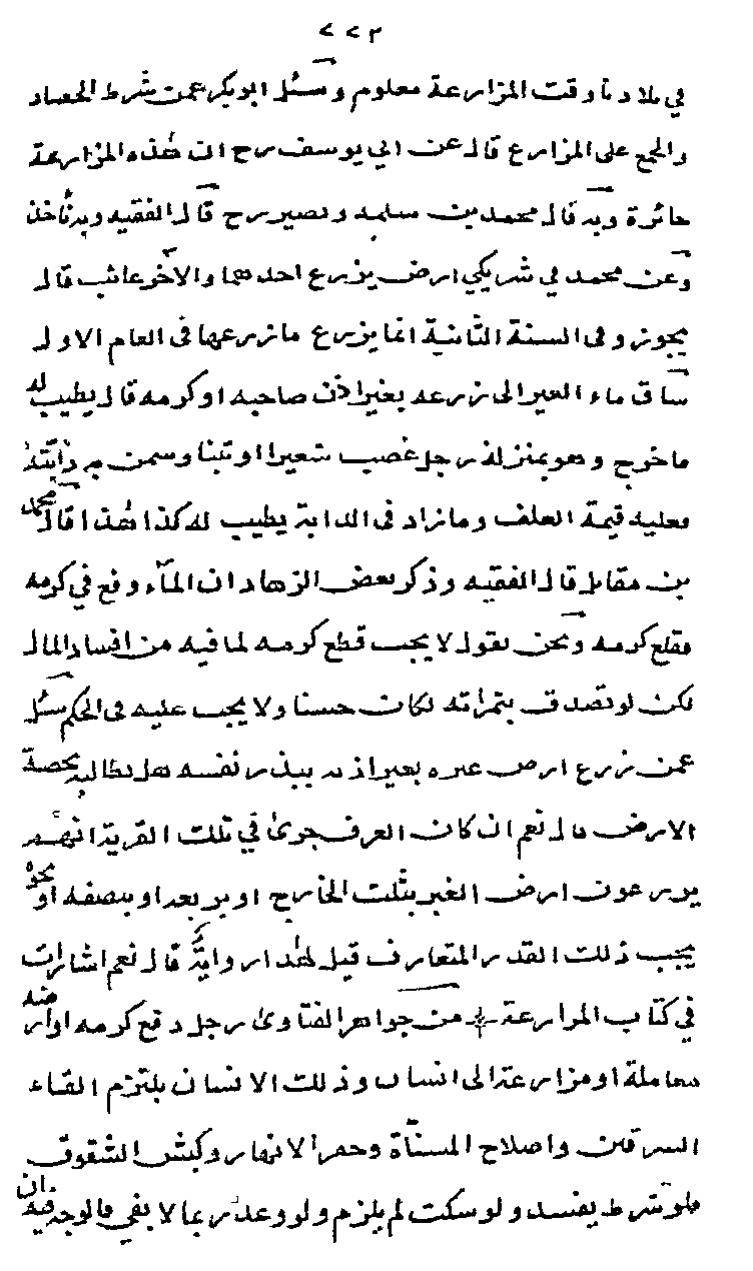 ٧٧٣
في بلادنا وقت المزارعة معلوم وسئل ابوبكر عمن شرط الحصاد
والجمع على المزارع قال عن ابي يوسف رح ان هذه المزارعة
جائزة وبه قال محمد بن سلمه ونصير رح قال الفقيه وبه نأخذ
وعن محمد في شريكي ارض يزرع احدهما والآخر غائب قال
يجوز وفى السنة الثانية انما يزرع ما زرعها فى العام الاول
ساق ماء الغير الى زرعه بغير اذن صاحبه او كرمه قال يطيب له
ما خرج وهو بمنزلة رجل غصب شعيرا او تبنا وسمن به دابته
فعليه قيمة العلف وما زاد فى الدابة يطيب له كذا هذا قال محمد
بن مقاتل قال الفقيه وذكر بعض الزهاد ان الماء وقع في كرمه
فقلع كرمه ونحن نقول لا يجب قطع كرمه لما فيه من افساد المال
لكن لو تصدق بثمراته لكان حسنا ولا يجب عليه فى الحكم سئل
عمن زرع ارض غيره بغير اذنه ببذر نفسه هل يطالبه بحصة
الارض قال نعم ان كان العرف جرى في تلك القرية انهم
يزرعون ارض الغير بثلث الخارج او بربعه او بنصفه او نحوه
يجب ذلك القدر المتعارف قيل لهذا رواية قال نعم اشارات
في كتاب المزارعة من جواهر الفتاوى رجل دفع كرمه او ارضه
معاملة او مزارعة الى انسان وذلك الانسان يلتزم القاء
السرقين واصلاح المسنّاة وحفر الانهار وكبش الشقوق
فلو شرط يفسد ولو سكت لم يلزم ولو وعد ربما لا يفي فالوجه فيه ان